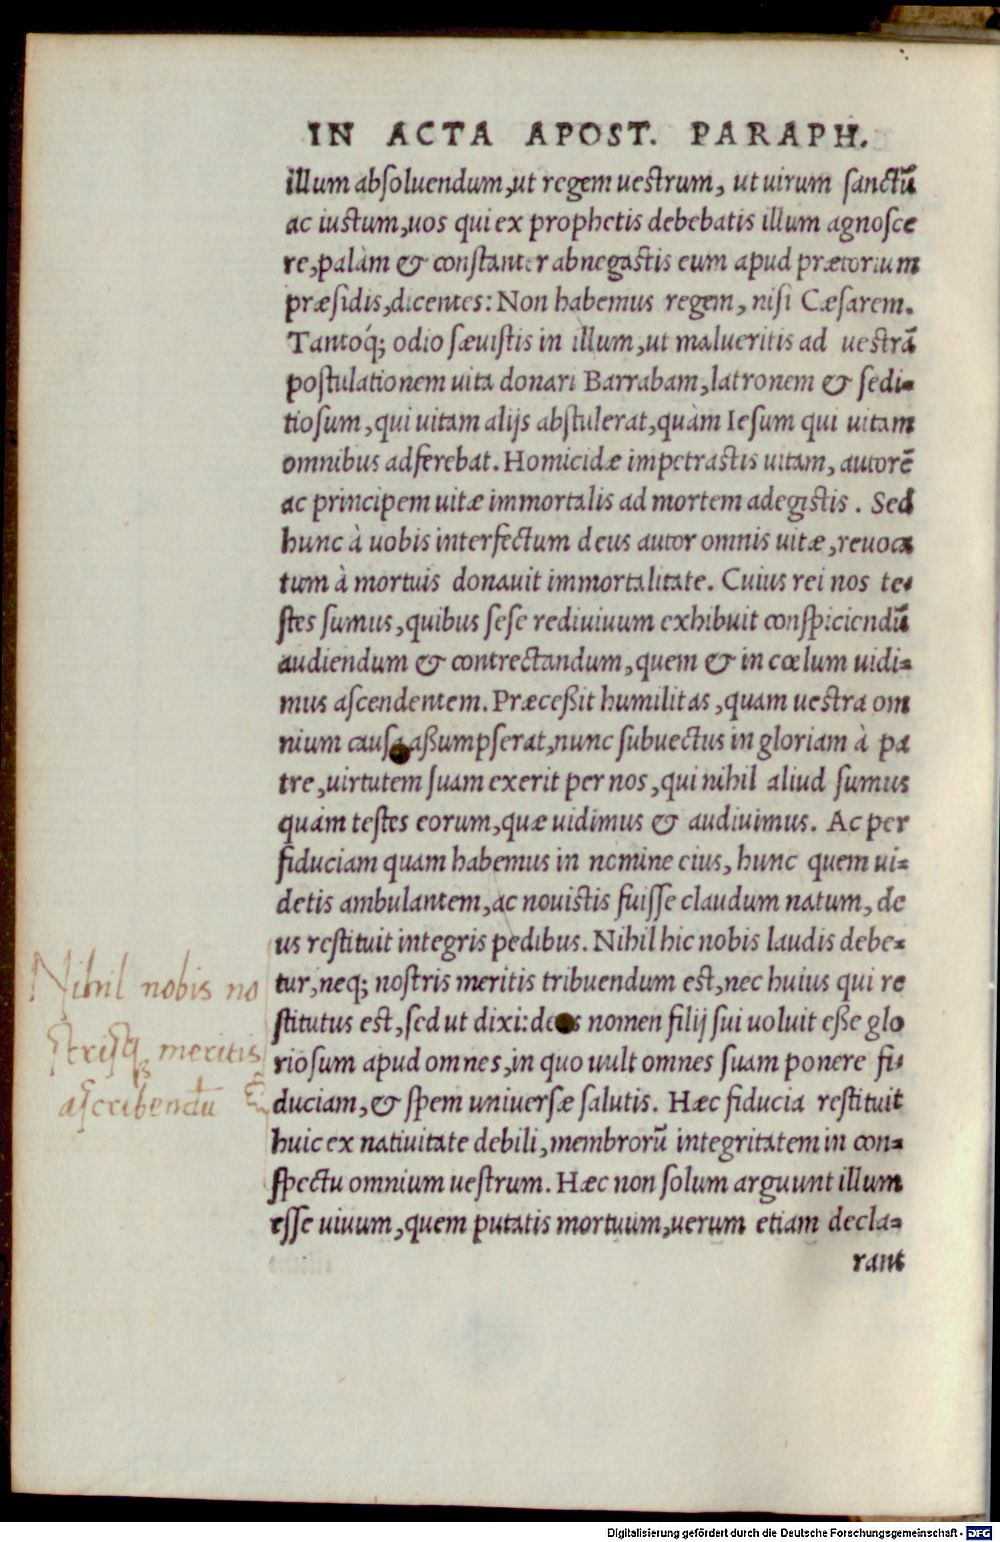 IN ACTA APOST. PARAPH.
illum absoluendum,ut regem uestrum, ut uirum sanctũ
ac iustum,uos qui ex prophetis debebatis illum agnosce
re,palàm & constanter abnegastis eum apud prætorium
præsidis,dicentes: Non habemus regem, nisi Cæsarem.
Tantoq́; odio sæuistis in illum,ut malueritis ad uestrã
postulationem uita donari Barrabam,latronem & sedi-
tiosum,qui uitam alijs abstulerat,quàm Iesum qui uitam
omnibus adferebat. Homicidæ impetrastis uitam, autorẽ
ac principem uitæ immortalis ad mortem adegistis. Sed
hunc à uobis interfectum deus autor omnis uitæ,reuoca
tum à mortuis donauit immortalitate. Cuius rei nos te-
stes sumus,quibus sese rediuiuum exhibuit conspiciendũ
audiendum & contrectandum,quem & in cœlum uidi-
mus ascendentem. Præceßit humilitas,quam uestra om
nium causa aßumpserat,nunc subuectus in gloriam à pa
tre,uirtutem suam exerit per nos,qui nihil aliud sumus
quàm testes eorum,quæ uidimus & audiuimus. Ac per
fiduciam quam habemus in nomine eius, hunc quem ui-
detis ambulantem,ac nouistis fuisse claudum natum, de
us restituit integris pedibus. Nihil hic nobis laudis debe-
tur,neq; nostris meritis tribuendum est,nec huius qui re
stitutus est,sed ut dixi:deus nomen filij sui uoluit eße glo
riosum apud omnes,in quo uult omnes suam ponere fi-
duciam,& spem uniuersæ salutis. Hæc fiducia restituit
huic ex natiuitate debili,membrorũ integritatem in con-
spectu omnium uestrum. Hæc non solum arguunt illum
esse uiuum,quem putatis mortuum,uerum etiam decla-
rant
Nihil nobis no
strisq meritis
ascribendũ
Digitalisierung gefördert durch die Deutsche Forschungsgemeinschaft - DFG